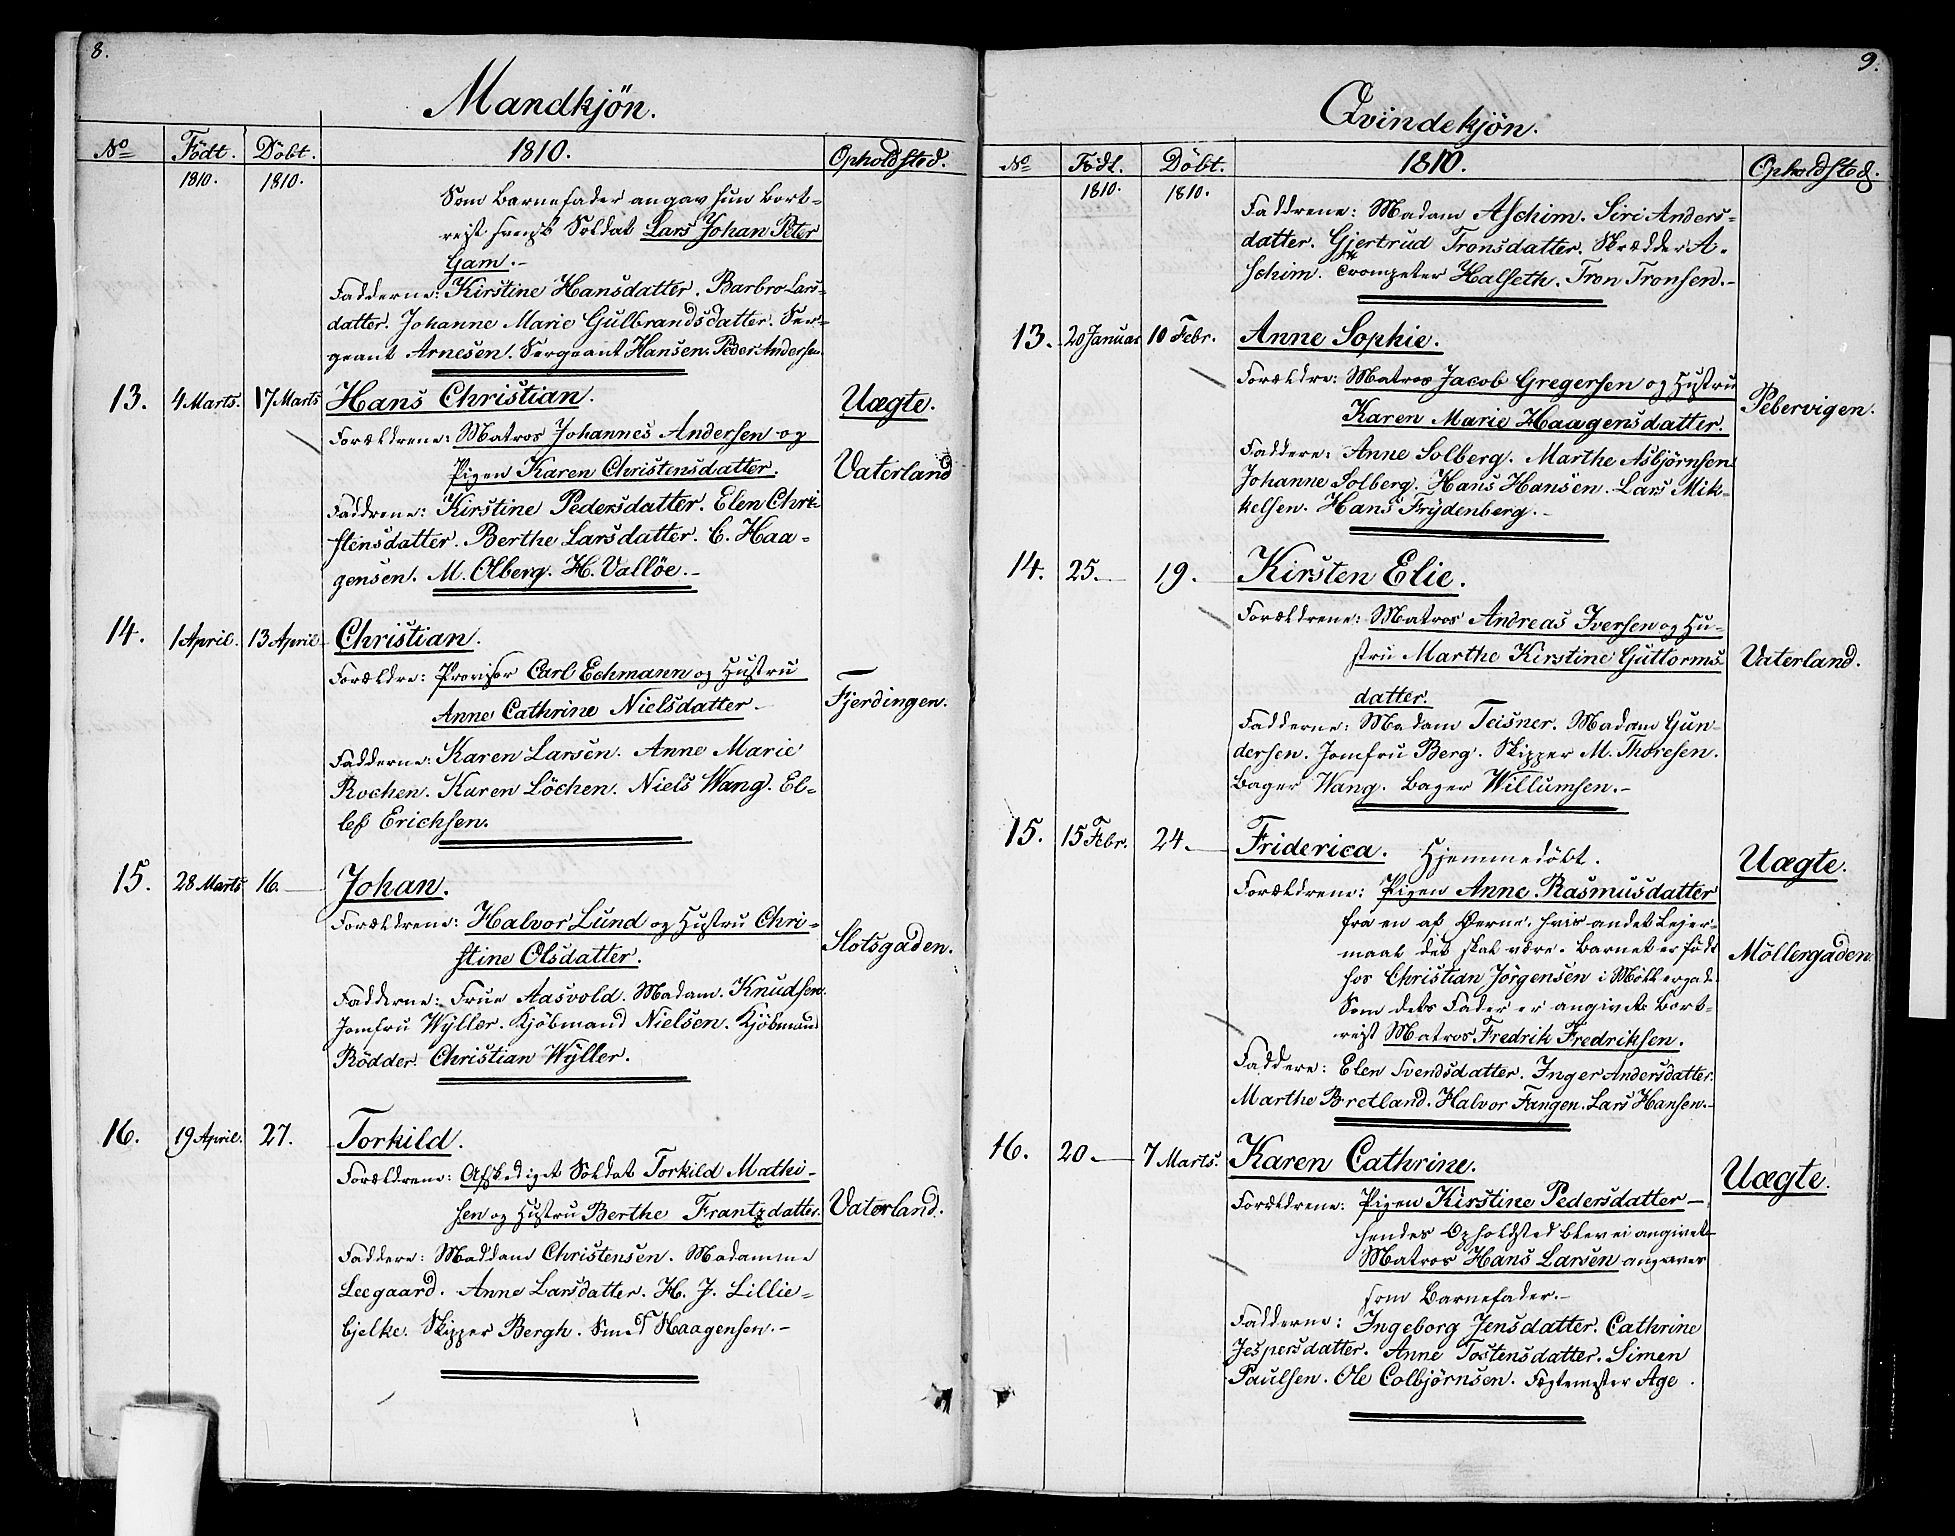 8.
Mandkjön.
No Födt. Döbt. 1810. Opholdsted.
1810. 1810.
Som Barnefader angav hun bort-
reist svensk Soldat Lars Johan Peter
Gam.-
Fadderne: Kirstine Hansdatter. Barbro Lars-
datter. Johanne Marie Gulbrandsdatter. Ser-
geant Arnesen. Sergeant Hansen. Peder Andersen.
13. 4 Marts. 17 Marts Hans Christian. Uægte.
Forældrene: Matros Johannes Andersen og
Pigen Karen Christensdatter. Vaterland
Faddrene: Kirstine Pedersdatter. Elen Chri
stensdatter. Berthe Larsdatter. C. Haa-
gensen. M. Olberg. H. Vallöe.-
14. 1 April. 13 April Christian.
Forældre: Provisor Carl Echmann og Hustru
Anne Cathrine Nielsdatter.- Fjerdingen.
Fadderne: Karen Larsen. Anne Marie
Rochen. Karen Löchen. Niels Wang. El-
lef Erichsen.
15. 28 Marts 16.— Johan.
Forældrene: Halvor Lund og Hustru Chri-
stine Olsdatter. Slotsgaden.
Fadderne: Frue Aasvold. Madam. Knudsen.
Jomfru Wÿller. Kjöbmand Nielsen. Kjöbmand
Rödder. Christian Wÿller.
16. 19 April. 27. Torkild.
Forældrene: Afskediget Soldat Torkild Mathi-
sen og Hustru Berthe Frantzdatter. Vaterland.
Faddere: Maddam Christensen. Madamme
Leegaard. Anne Larsdatter. H. J. Lillie-
bjelke. Skipper Bergh. Smed Haagensen.-
9.
Qvindekjön.
No Födt. Döbt. 1810. Opholdsted.
1810. 1810.
Faddrene: Madam Aschim. Siri Anders-
datter. Gjertrud Tronsdatter. Skrædder A-
schim. Trompeter Halseth. Tron Tronsen.-
13. 20 Januar 10 Febr. Anne Sophie.
Forældre: Matros Jacob Gregersen og Hustru
Karen Marie Haagensdatter. Pebervigen.
Faddere: Anne Solberg. Marthe Asbjörnsen
Johanne Solberg. Hans Hansen. Lars Mik-
kelsen. Hans Frÿdenberg.-
14. 25.— 19.— Kirsten Elie.
Forældrene: Matros Andreas Iversen og Hu-
stru Marthe Kirstine Guttorms Vaterland.
datter.
Fadderne: Madam Teisner. Madam Gun-
dersen. Jomfru Berg. Skipper M. Thoresen.
Bager Wang. Bager Willumsen.-
15. 15 Febr. 24.— Friderica. Hjemmedöbt. Uægte.
Forældrene: Pigen Anne Rasmusdatter
fra en af Øerne, hvis andet Leier-
maal det skal være. Barnet er född Möllergaden.
hos Christian Jörgensen i Möllergad.
Som dets Fader er angivet bort-
reist Matros Fredrik Fredriksen.
Faddere: Elen Svendsdatter. Inger Andersdatter.
Marthe Bretland. Halvor Fangen. Lars Hansen.-
16. 20— 7 Marts. Karen Cathrine. Uægte.
Forældrene: Pigen Kirstine Pedersdatter—
hendes Opholdsted blev ei angivet
Matros Hans Larsen angaves
som Barnefader.-
Fadderne: Ingeborg Jensdatter. Cathrine
Jespersdatter. Anne Tostensdatter. Simen
Paulsen. Ole Colbjörnsen. Fegtemester Age.